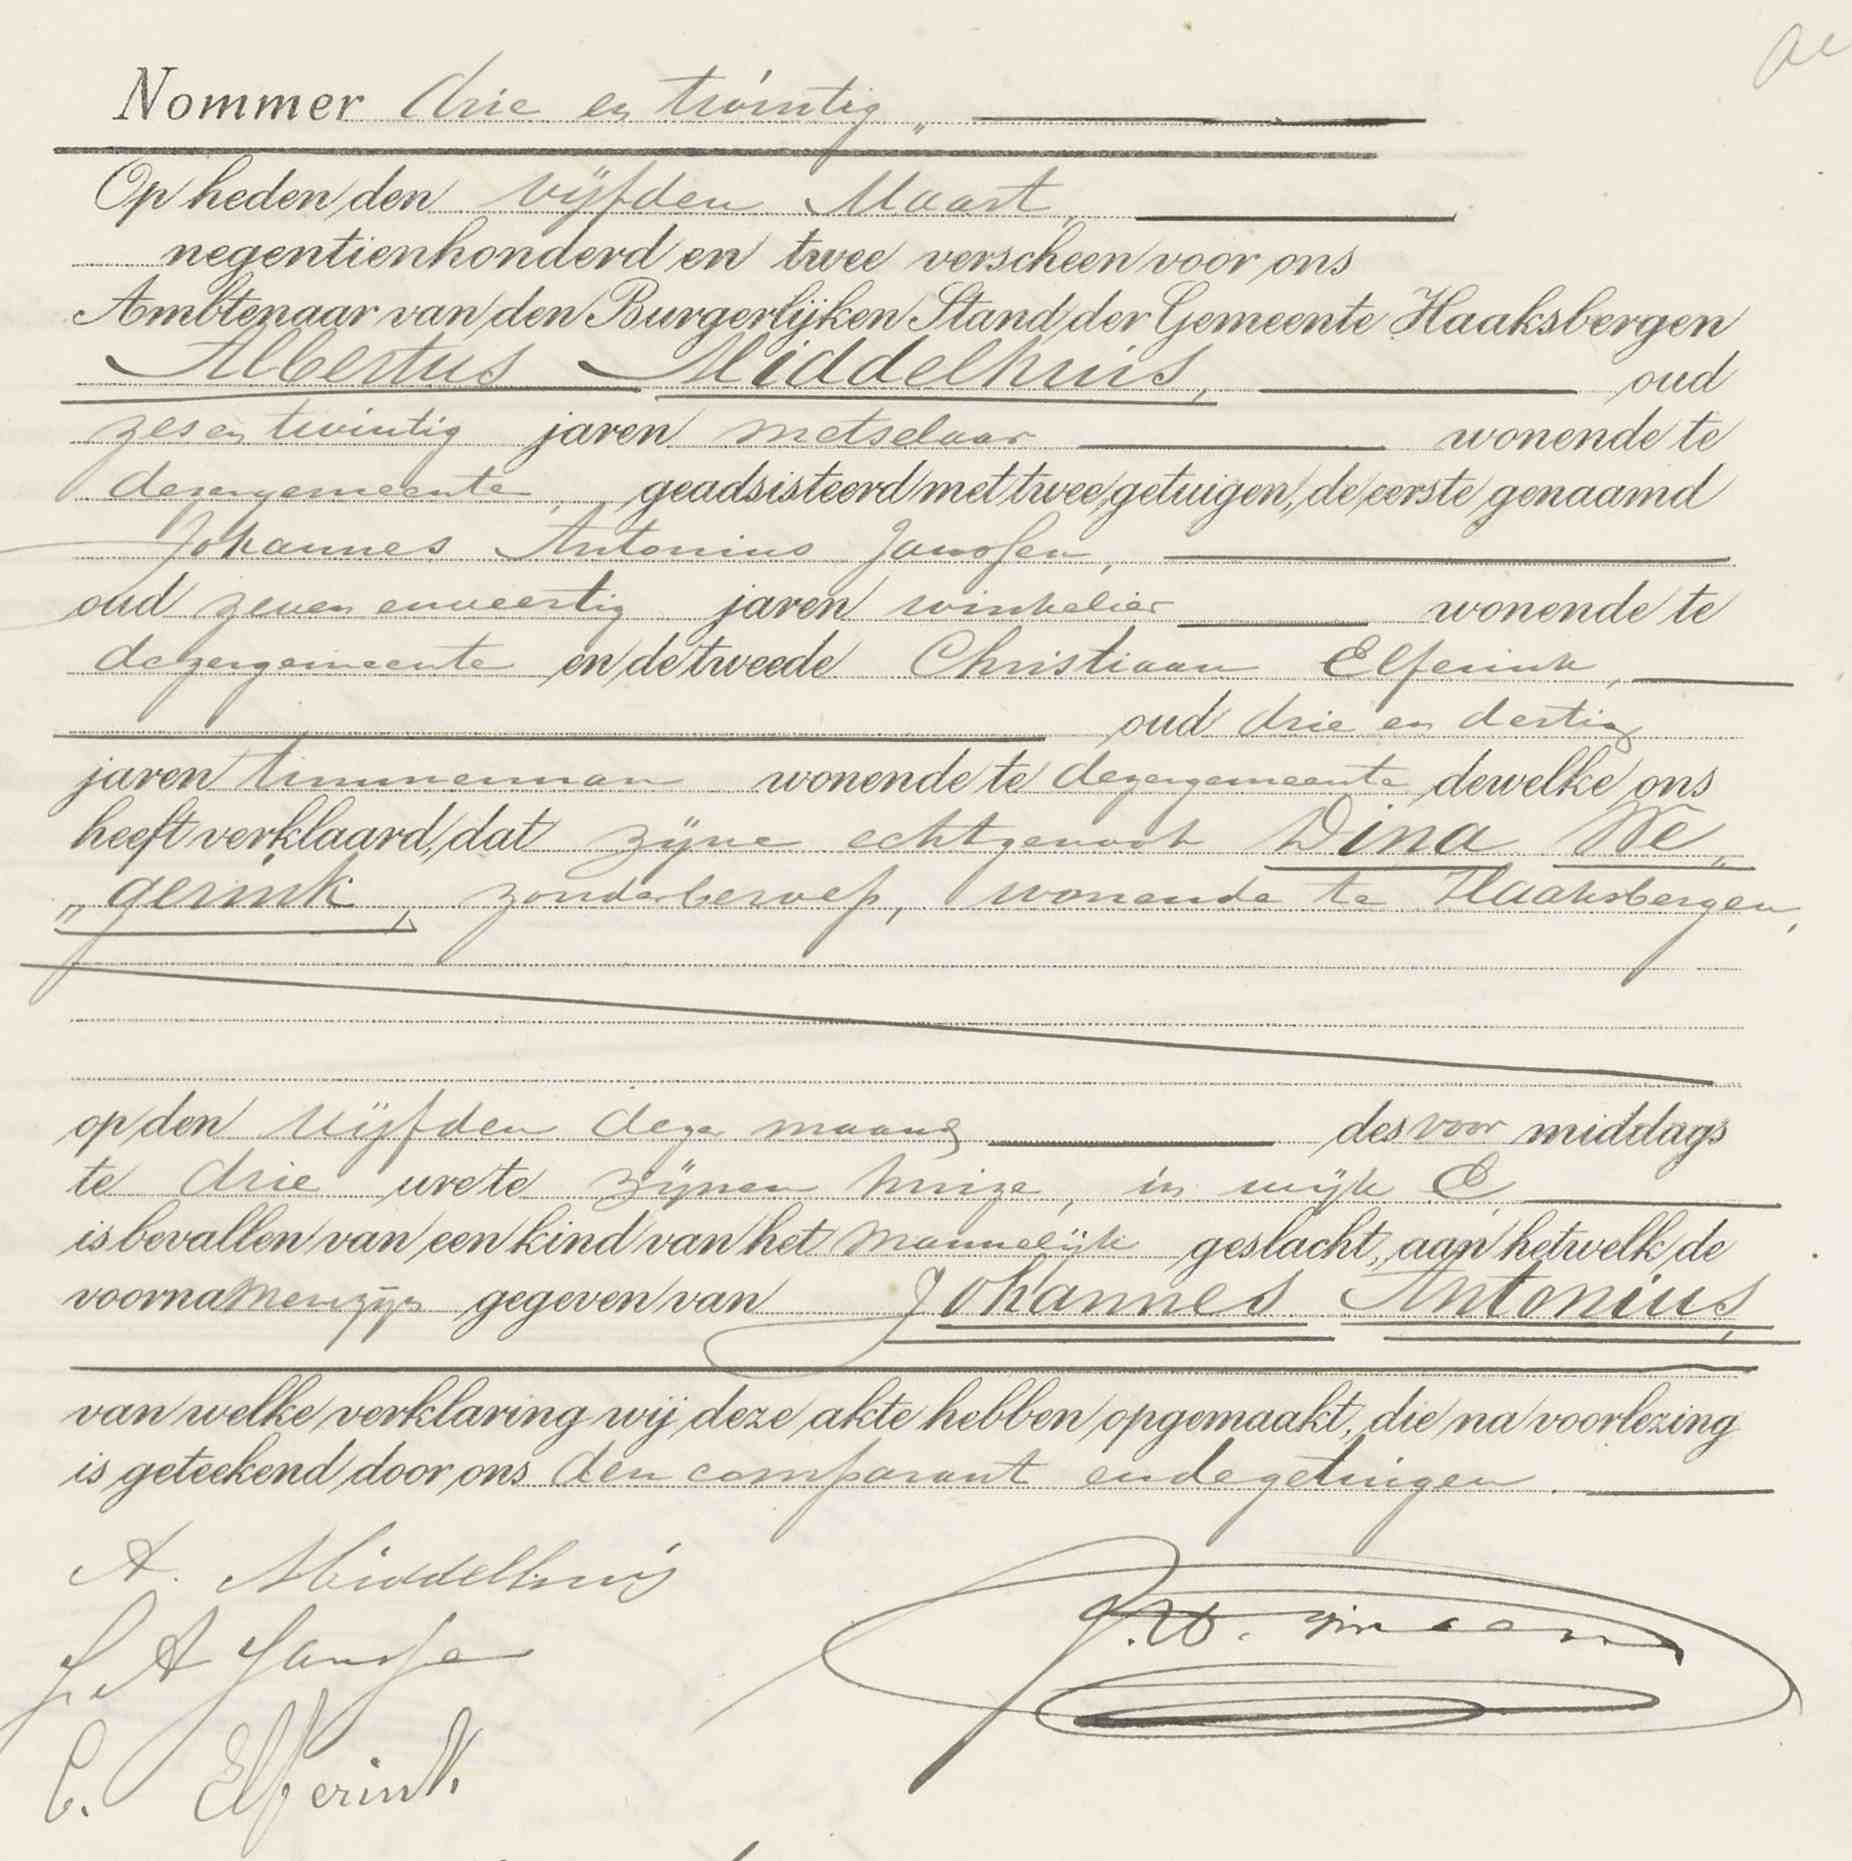 Nommer drie en twintig „
Op heden den vijfden Maart,
negentienhonderd en twee verscheen voor ons
Ambtenaar van den Burgerlijken Stand der Gemeente Haaksbergen
Albertus Middelhuis, oud
zes en twintig jaren metselaar wonende te
dezergemeente, geadsisteerd met twee getuigen, de eerste genaamd
Johannes Antonius Janssen,
oud zeven en veertig jaren winkelier wonende te
dezergemeente en de tweede Christiaan Elferink,
oud drie en dertig
jaren timmerman wonende te dezergemeente dewelke ons
heeft verklaard, dat zijne echtgenoot Dina We„
„gerink, zonder beroep, wonende te Haaksbergen,
op den vijfden dezer maand des voor middags
te drie ure te zijnen huize, in wijk E,
is bevallen van een kind van het mannelijk geslacht, aan hetwelk de
voornamen zijn gegeven van Johannes Antonius,
van welke verklaring wij deze akte hebben opgemaakt, die na voorlezing
is geteekend door ons den comparant en de getuigen.
A. Middelhuis
J. A Janssen
C. Elferink